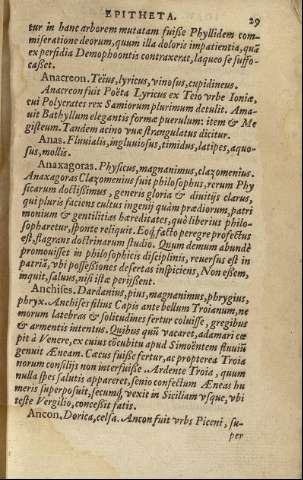 EPITHETA. 29
tur in hanc arborem mutatam fuisse Phyllidem com-
miseratione deorum, quum illa doloris impatientia, quā
ex perfidia Demophoontis contraxerat, laqueo se suffo-
casset.
Anacreon. Teius, lyricus, vinosus, cupidineus.
Anacreon fuit Poëta Lyricus ex Teio vrbe Ioniæ,
cui Polycrates rex Samiorum plurimum detulit. Ama-
uit Bathyllum elegantis formæ puerulum: item & Me
gisteum. Tandem acino vuæ strangulatus dicitur.
Anas. Fluuialis, ingluuiosus, timidus, latipes, aquo-
sus, mollis.
Anaxagoras. Physicus, magnanimus, clazomenius.
Anaxagoras Clazomenius fuit philosophus, rerum Phy
sicarum doctissimus, generis gloria & diuitijs clarus,
qui pluris faciens cultus ingenij quàm prædiorum, patri
monium & gentilitias hæreditates, quò liberius philo-
sopharetur, sponte reliquit. Eoq́; facto peregre profectus
est, flagrans doctrinarum studio. Quum demum abundè
promouisset in philosophicis disciplinis, reuersus est in
patriā, vbi possessiones desertas inspiciens, Non essem,
inquit, saluus, nisi istæ perijssent.
Anchises. Dardanius, pius, magnanimus, phrygius,
phryx. Anchises filius Capis ante bellum Troianum, ne
morum latebras & solitudines fertur coluisse, gregibus
& armentis intentus. Quibus quū vacaret, adamari cœ
pit à Venere, ex cuius cōcubitu apud Simoëntem fluuiū
genuit Æneam. Cæcus fuisse fertur, ac propterea Troia
norum consilijs non interfuisse. Ardente Troia, quum
nulla spes salutis appareret, senio confectum Æneas hu
meris superposuit, secumq́; vexit in Siciliam vsque, vbi
teste Vergilio, concessit fatis.
Ancon. Dorica, celsa. Ancon fuit vrbs Piceni, su-
per